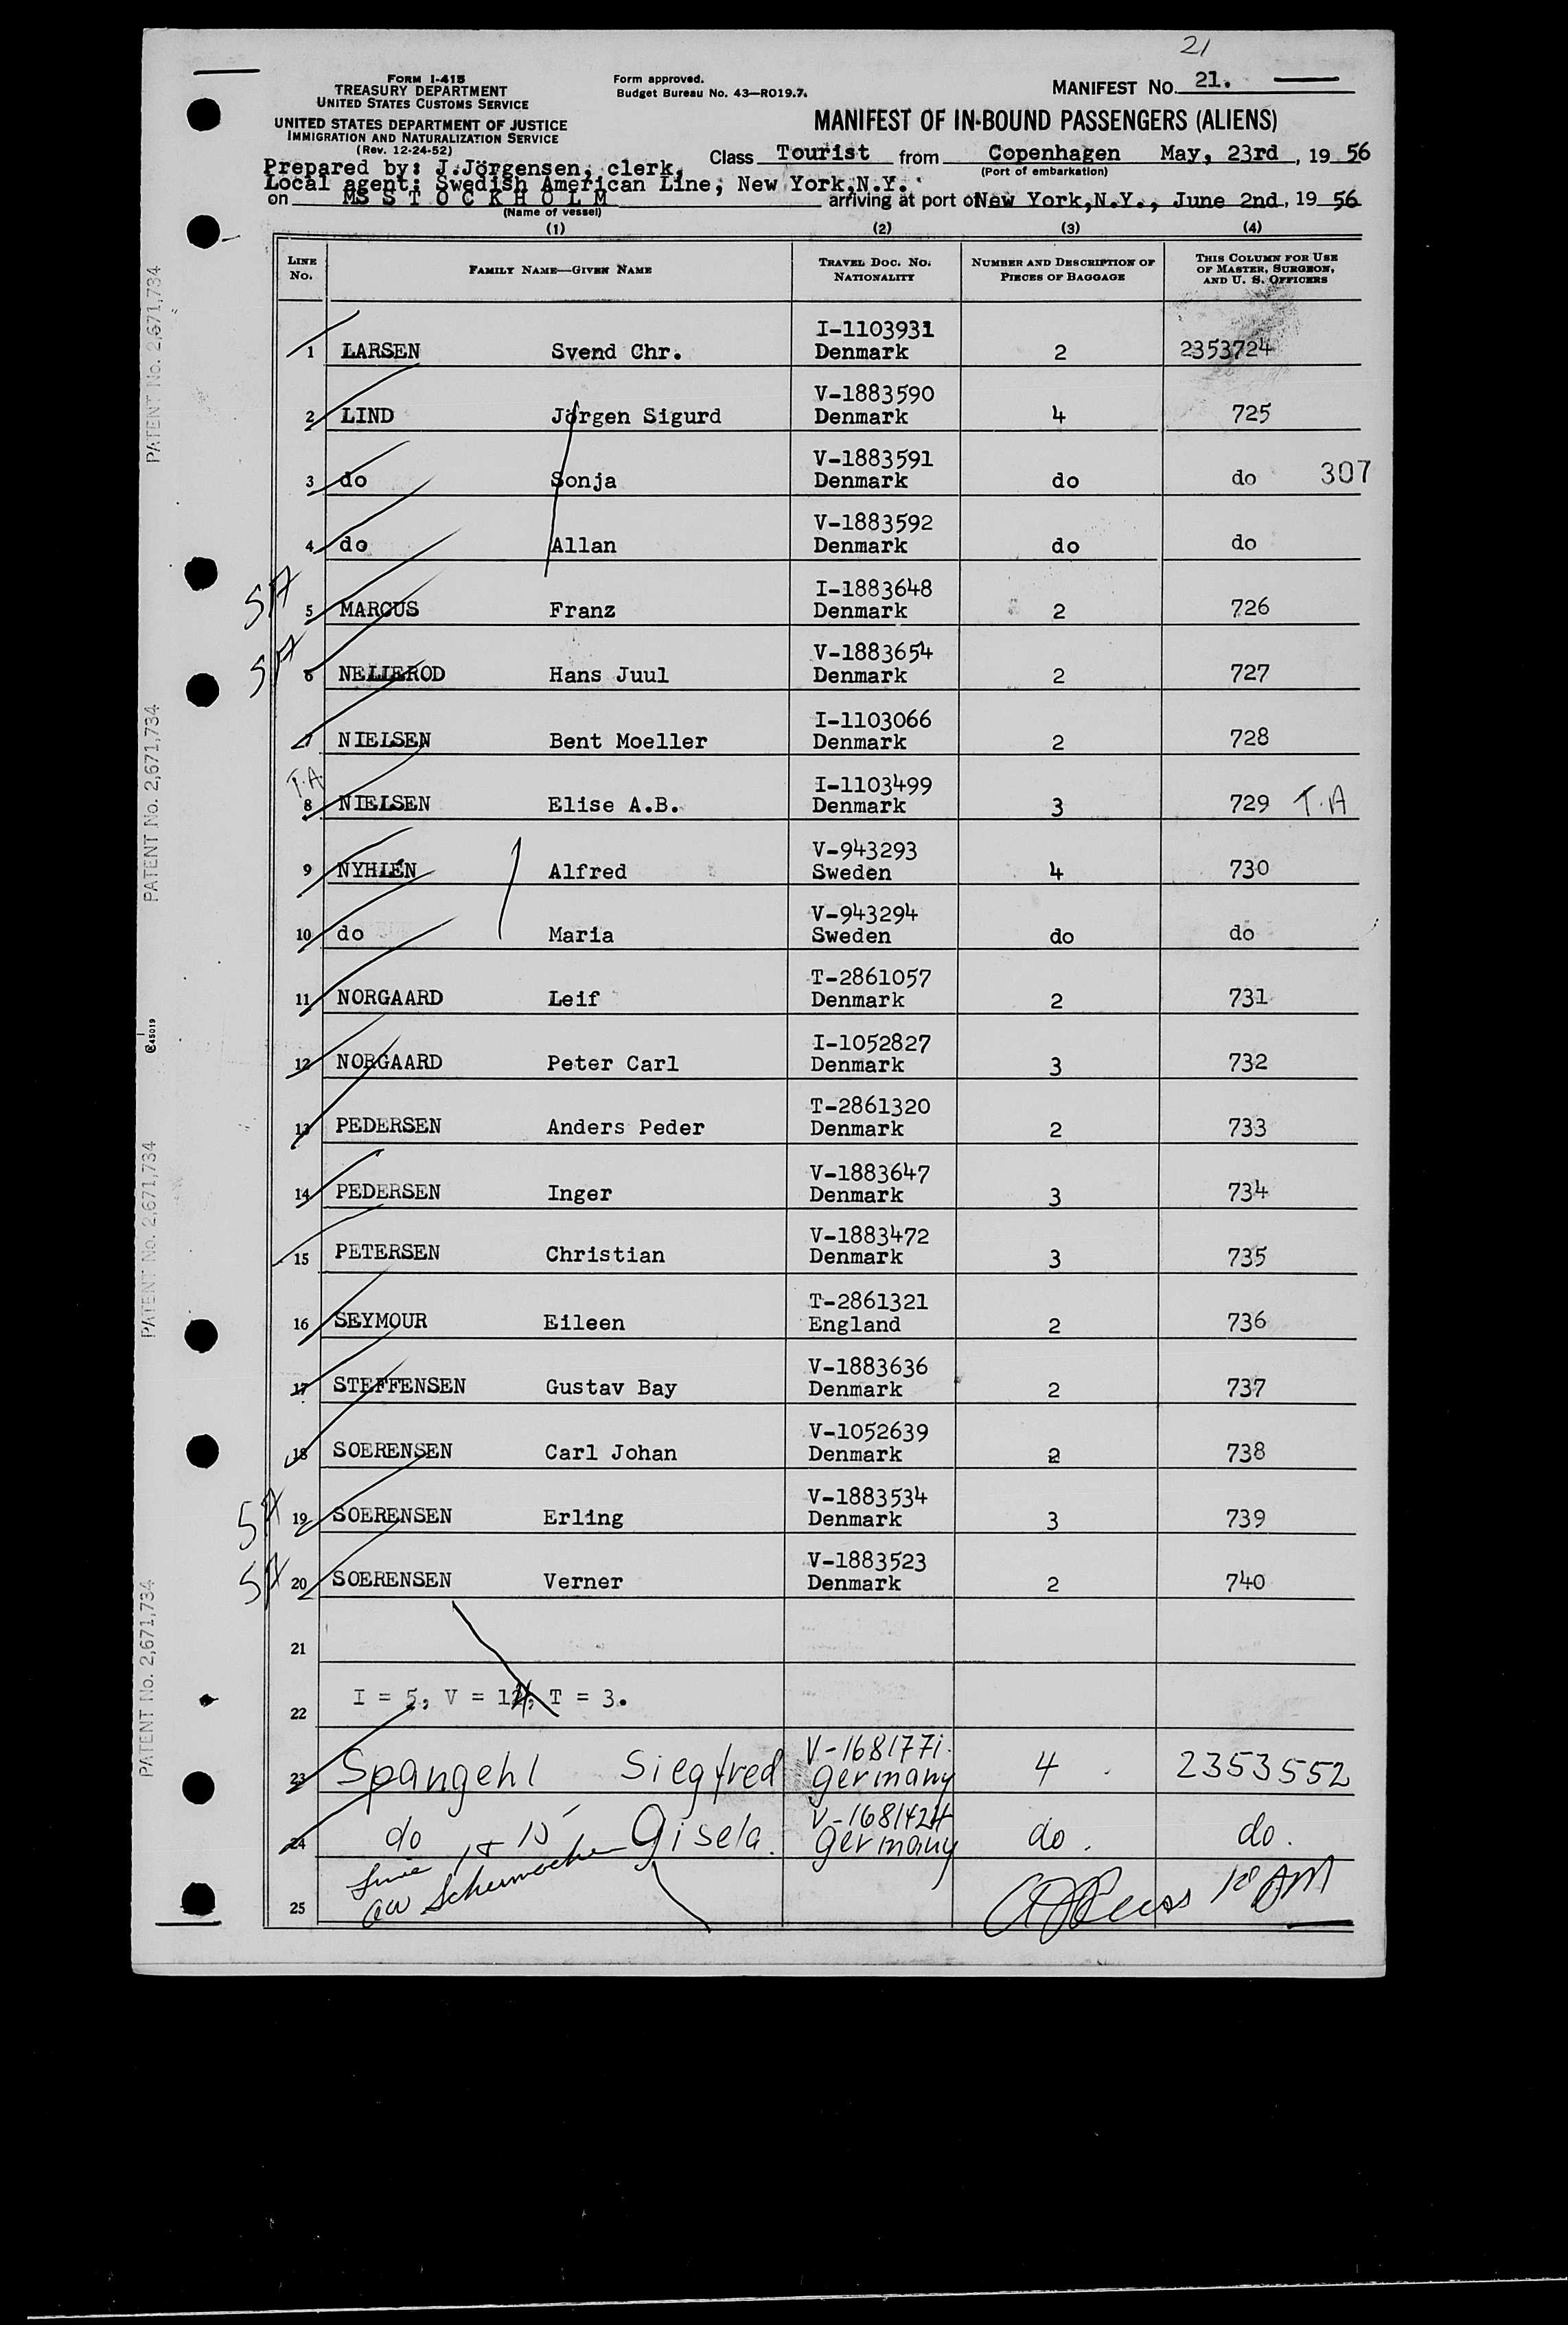 21
FORM I-415
TREASURY DEPARTMENT
UNITED STATES CUSTOMS SERVICE
UNITED STATES DEPARTMENT OF JUSTICE
IMMIGRATION AND NATURALIZATION SERVICE
(Rev. 12-24-52)
Form approved.
Budget Bureau No. 43—RO19.7.
MANIFEST No. 21.
MANIFEST OF IN-BOUND PASSENGERS (ALIENS)
Prepared by: J.Jörgensen, clerk,
Class Tourist from Copenhagen May, 23rd, 19 56
(Port of embarkation)
Local agent: Swedish American Line, New York,N.Y.
on MS S T O C K H O L M arriving at port of New York,N.Y., June 2nd, 19 56
(Name of vessel)
(1) (2) (3) (4)
LINE No. FAMILY NAME—GIVEN NAME TRAVEL DOC. NO. NATIONALITY NUMBER AND DESCRIPTION OF PIECES OF BAGGAGE THIS COLUMN FOR USE OF MASTER, SURGEON, AND U. S. OFFICERS
I-1103931
1 LARSEN Svend Chr. Denmark 2 2353724
V-1883590
2 LIND Jörgen Sigurd Denmark 4 725
V-1883591
3 do Sonja Denmark do do 307
V-1883592
4 do Allan Denmark do do
I-1883648
5 MARCUS Franz Denmark 2 726
V-1883654
6 NELLEROD Hans Juul Denmark 2 727
I-1103066
7 NIELSEN Bent Moeller Denmark 2 728
T.A. I-1103499
8 NIELSEN Elise A.B. Denmark 3 729 T.A
V-943293
9 NYHLÉN Alfred Sweden 4 730
V-943294
10 do Maria Sweden do do
T-2861057
11 NORGAARD Leif Denmark 2 731
I-1052827
12 NORGAARD Peter Carl Denmark 3 732
T-2861320
13 PEDERSEN Anders Peder Denmark 2 733
V-1883647
14 PEDERSEN Inger Denmark 3 734
V-1883472
15 PETERSEN Christian Denmark 3 735
T-2861321
16 SEYMOUR Eileen England 2 736
V-1883636
17 STEFFENSEN Gustav Bay Denmark 2 737
V-1052639
18 SOERENSEN Carl Johan Denmark 2 738
V-1883534
19 SOERENSEN Erling Denmark 3 739
V-1883523
20 SOERENSEN Verner Denmark 2 740
21
22 I = 5, V = 12, T = 3.
V-1681771
23 Spangehl Siegfred Germany 4 2353552
V-1681424
24 do Gisela Germany do. do.
25 10 AM
PATENT No. 2,671,734
PATENT No. 2,671,734
PATENT No. 2,671,734
PATENT No. 2,671,734